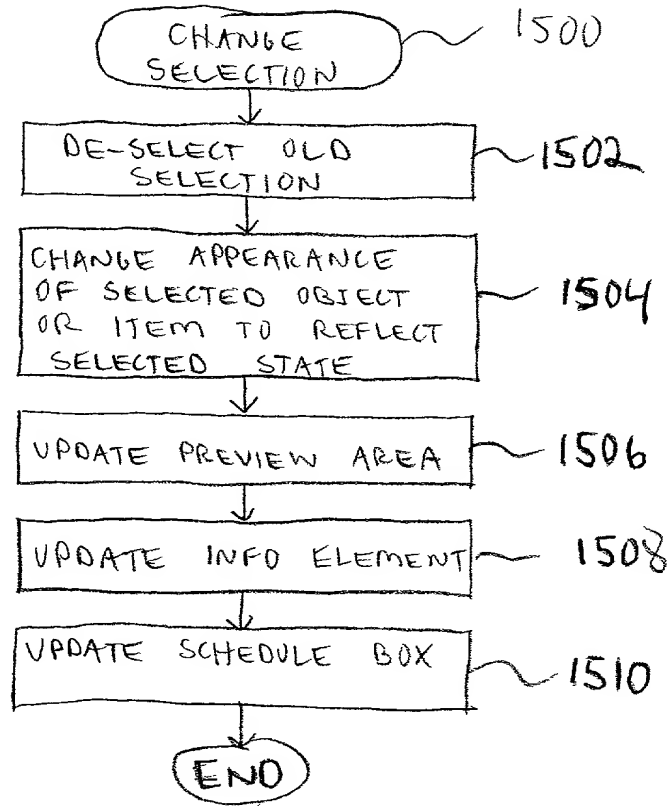 CHANGE
SELECTION
1500
DE-SELECT OLD
SELECTION
1502
CHANGE APPEARANCE
OF SELECTED OBJECT
OR ITEM TO REFLECT
SELECTED STATE
1504
UPDATE PREVIEW AREA
1506
UPDATE INFO ELEMENT
1508
UPDATE SCHEDULE BOX
1510
END